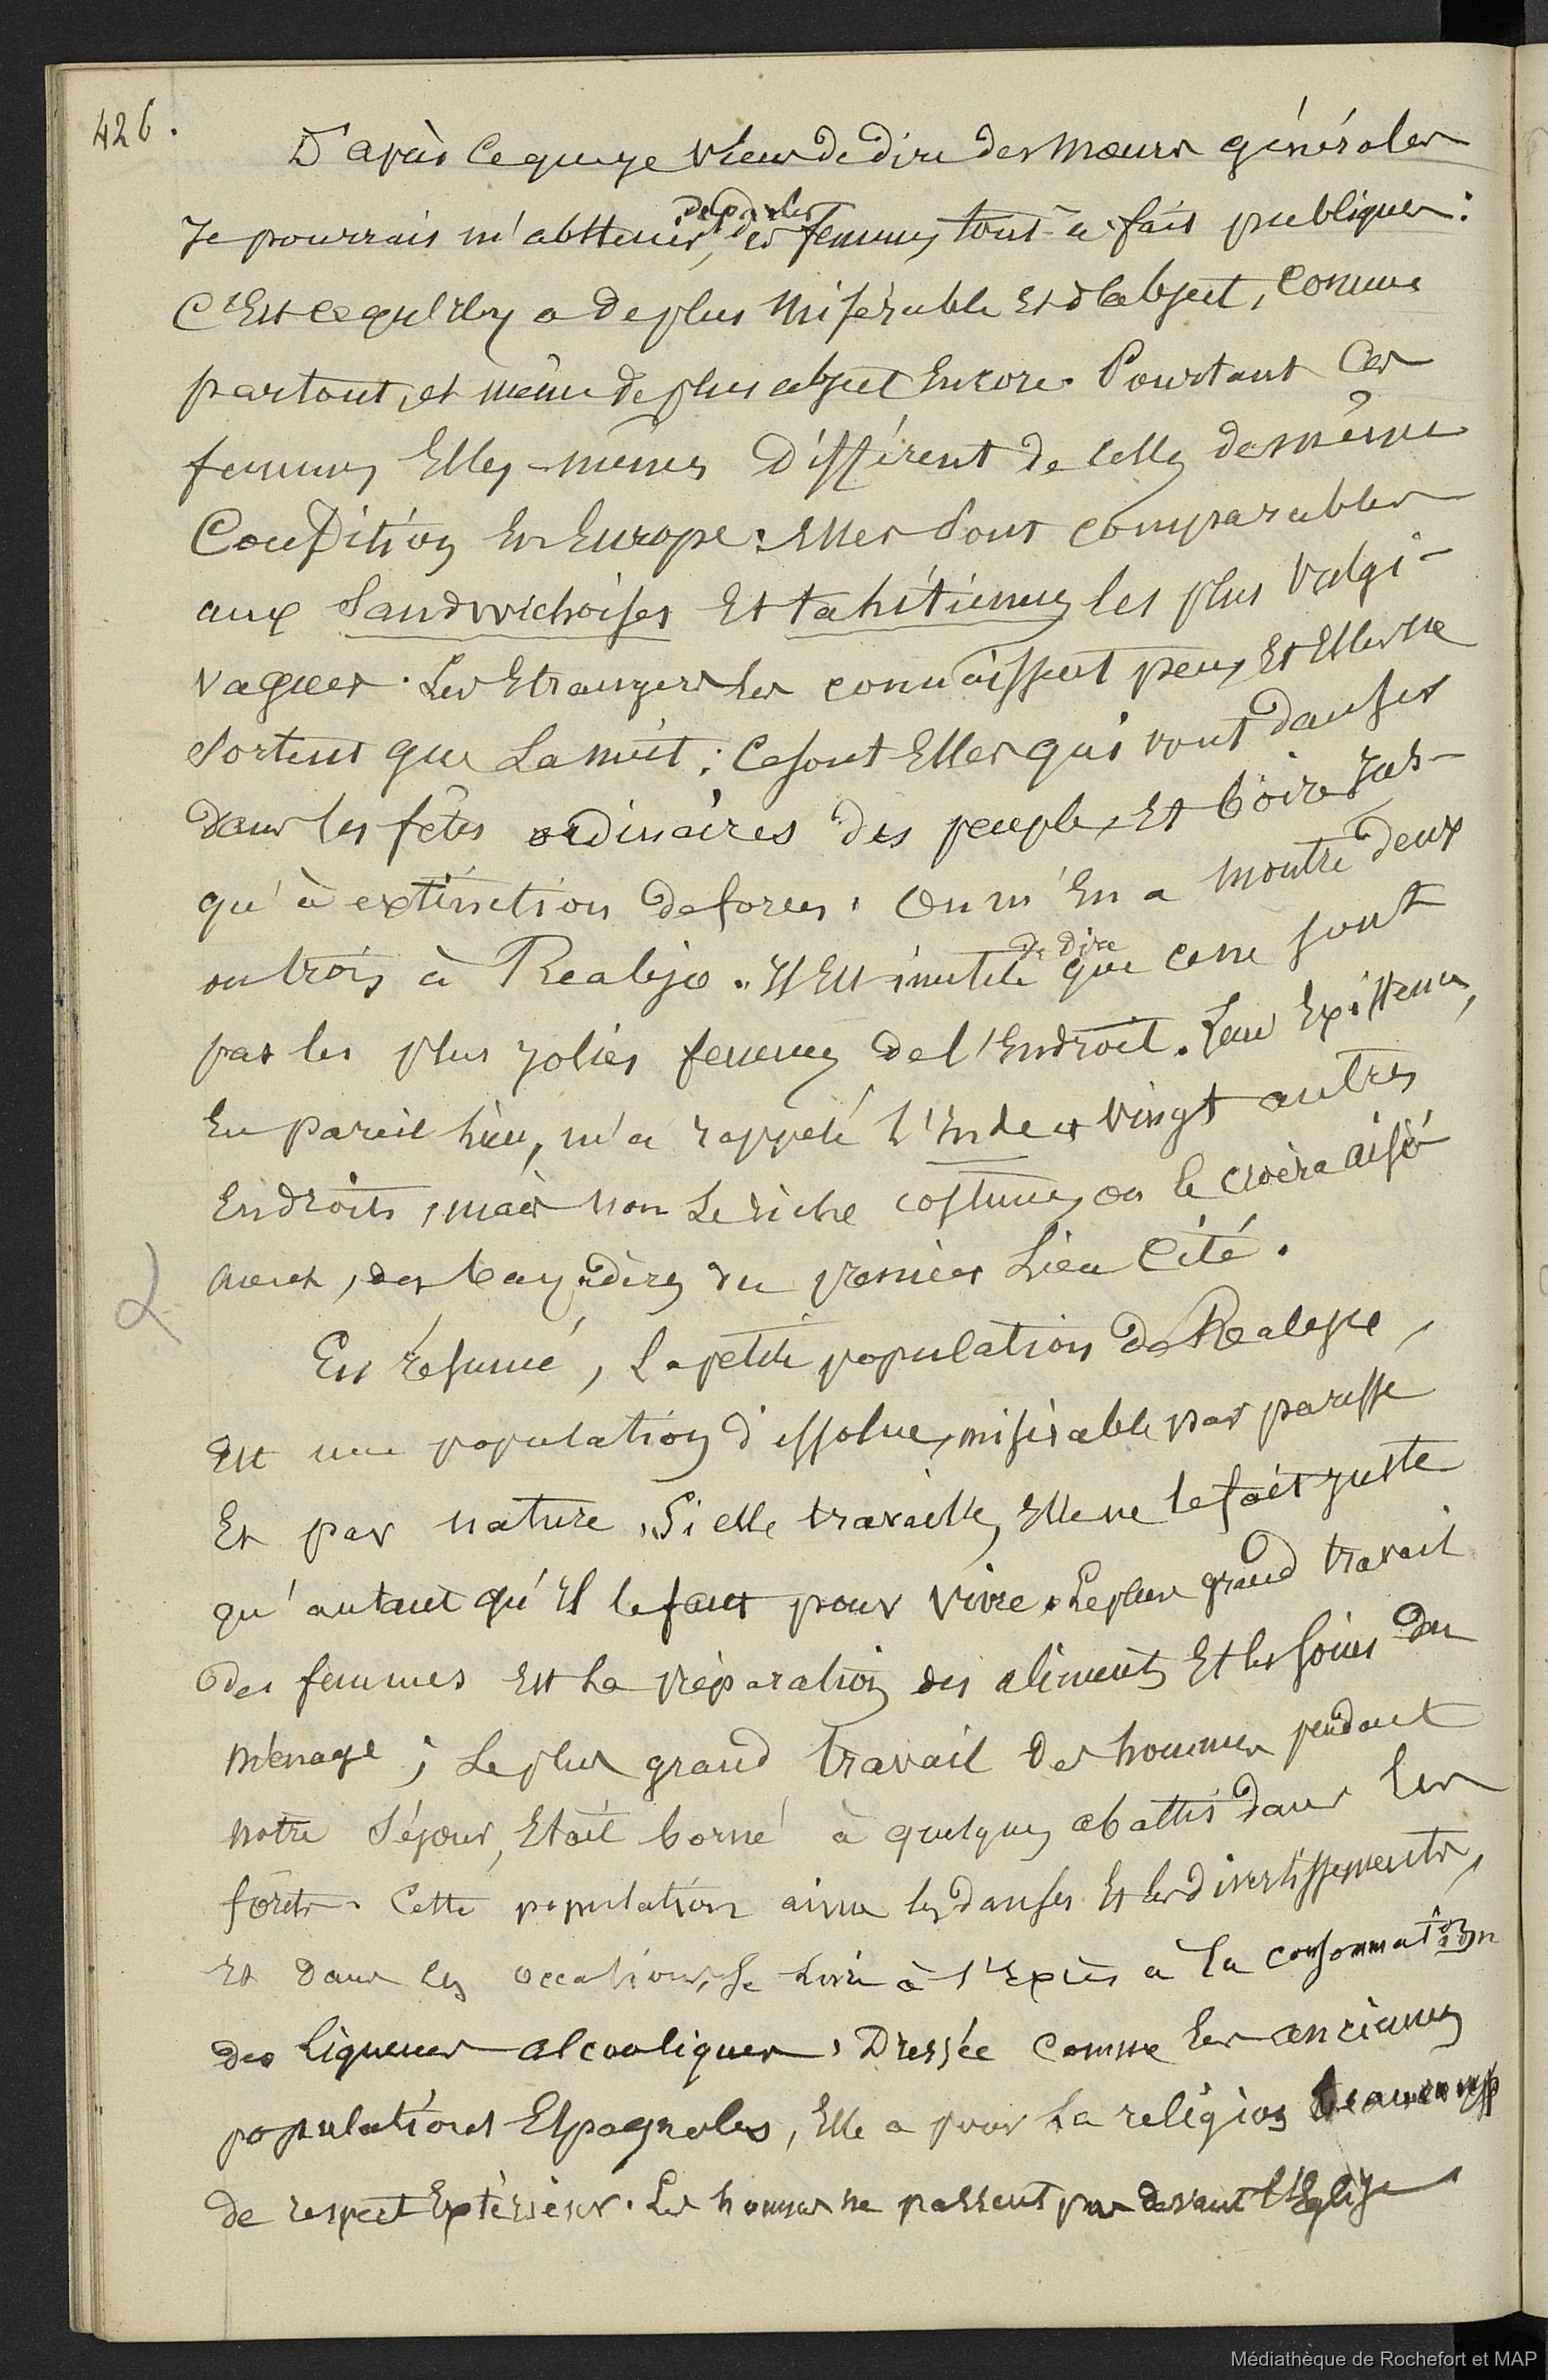 426.
D'après ce que je viens de dire des mœurs générales
de parler
Je pourrais m'abstenir, des femmes tout-à-fait publiques:
C'est ce qu'il y a de plus misérable et d'abject, comme
partout, et même de plus abject encore. Pourtant ces
femmes elles-mêmes diffèrent de celles de même
Condition en Europe: elles sont comparables
aux Sandwichoises et tahitiennes les plus vulgi-
vagues. Les Etrangers les connaissent peu, et elles ne
sortent que la nuit; ce sont elles qui vont danser
dans les fêtes ordinaires des peuples, et boire jus-
qu'à extinction de forces. On m'en a montré deux
de dire
ou trois à Realejo. Il est inutile que ce ne sont
pas les plus jolies femmes de l'endroit. Leur existence,
en pareil lieu, m'a rappelé l'Inde et vingt autres
endroits, mais non le riche costume, on le croira aisé-
ment, des bayadères du premier lieu cité.
En résumé, la petite population de Realejo,
est une population dissolue, misérable par paresse
et par nature. Si elle travaille, elle ne le fait juste
qu'autant qu'il le faut pour vivre. Le plus grand travail
des femmes est la préparation des aliments et les soins du
ménage; le plus grand travail des hommes pendant
notre séjour, était borné à quelques abattis dans les
forêts. Cette population aime les danses et les divertissements,
et dans ces occasions, se livre à l'excès à la consommation
des liqueurs alcooliques. Dressée comme les anciennes
populations Espagnoles, elle a pour la religion beaucoup
de respect extérieur. Les hommes ne passent pas devant l'Eglise
Médiathèque de Rochefort et MAP